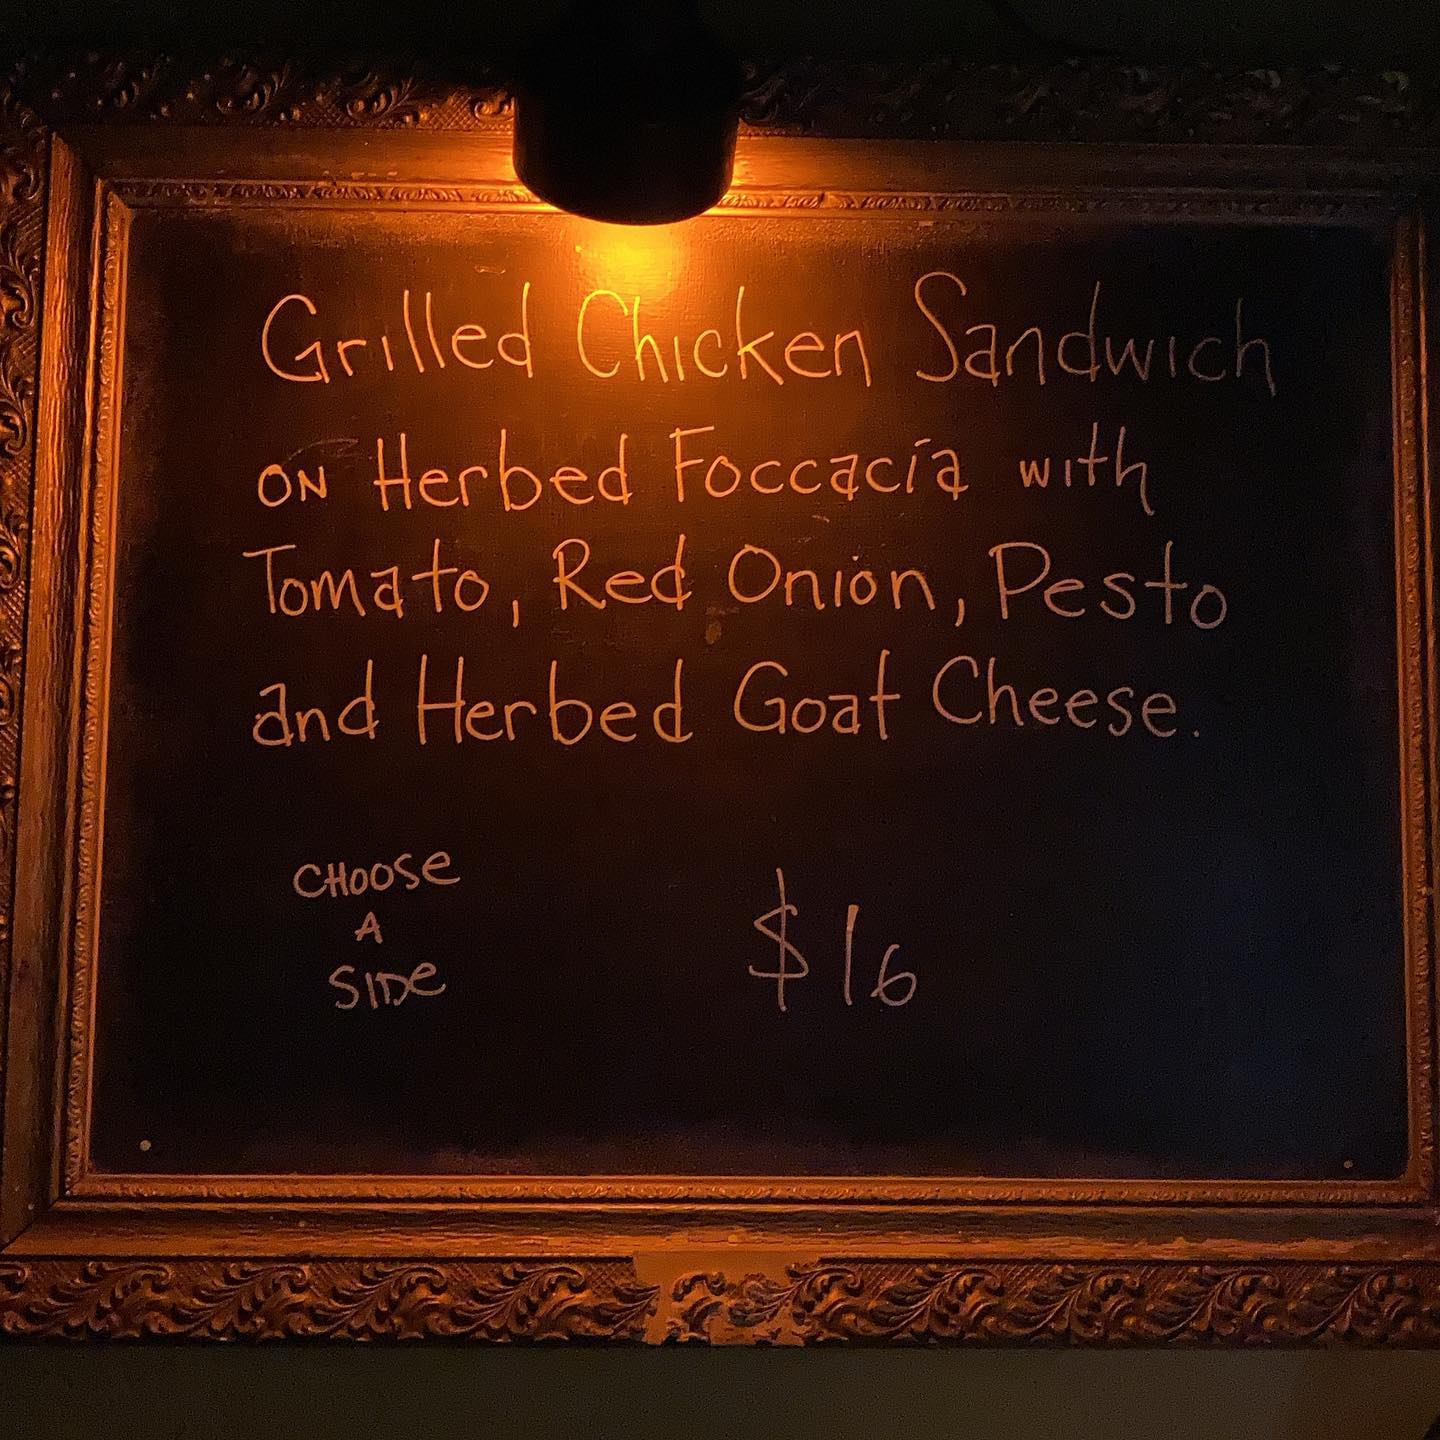 Grilled Chicken Sandwich
ON Herbed Foccacia with
Tomato, Red Onion, Pesto
and Herbed Goat Cheese.
CHOOSE
A
SIDE
$16